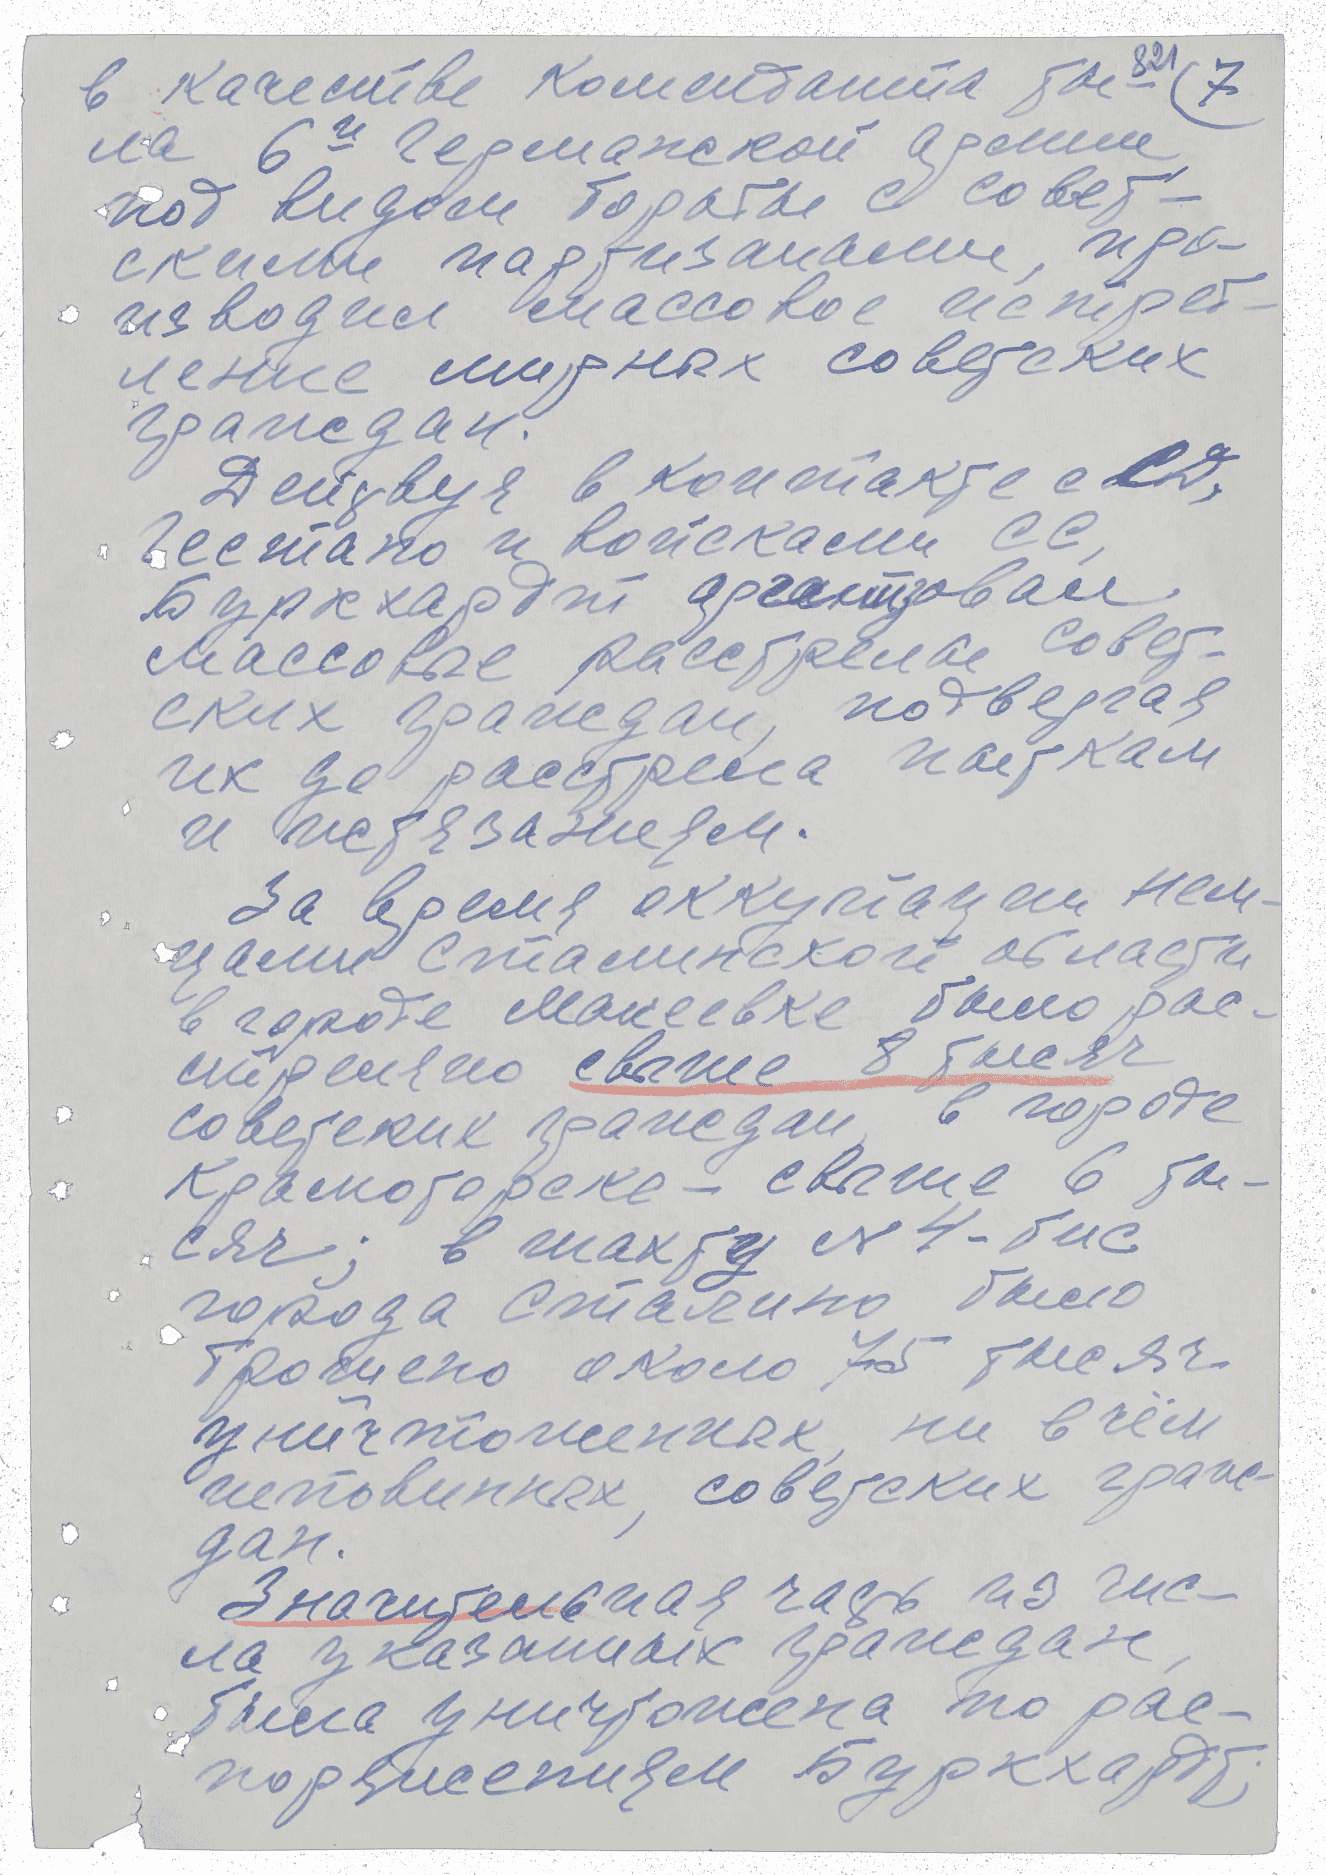 321 7
в качестве коменданта ты-
ла 6й германской армии
под видом борьбы с совет-
скими партизанами, про-
изводил массовое истреб-
ление мирных советских
граждан.
Действуя в контакте с СД,
гестапо и войсками СС,
Буркхардт организовал
массовые расстрелы совет-
ских граждан, подвергая
их до расстрела пыткам
и истязаниям.
За время оккупации нем-
цами Сталинской области
в городе Макеевке было рас-
стреляно свыше 8 тысяч
советских граждан, в городе
Краматорске – свыше 6 ты-
сяч; в шахту № 4-бис
города Сталино было
брошено около 75 тысяч
уничтоженных, ни в чём
неповинных, советских граж-
дан.
Значительная часть из чис-
ла указанных граждан,
была уничтожена по рас-
поряжениям Буркхардт;